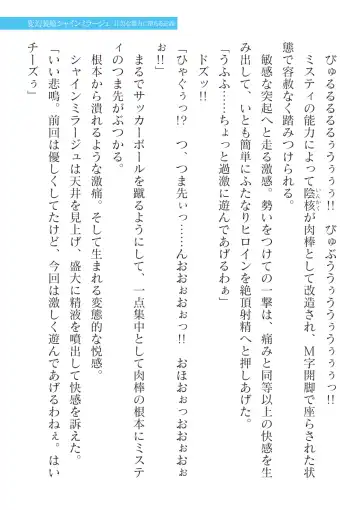 変幻装姫シャインミラージュ
びゅるるるるるぅぅぅぅ!! びゅぶううぅぅぅぅぅぅぅっ!!
ミスティの能力によって陰核が肉棒として改造され、M字開脚で座らされた状
態で容赦なく踏みつけられる。
敏感な突起へと走る激感。勢いをつけての一撃は、痛みと同等以上の快感を生
み出して、いとも簡単にふたなりヒロインを絶頂射精へと押し上げた。
「うふふ……ちょっと過激に遊んであげるわぁ」
ドズッ!!
「ひゃぐぅっ!? つ、つま先ぃっ……んおおぉぉぉっ!! おほおぉっおおぉぉぉ
お!!」
まるでサッカーボールを蹴るようにして、一点集中として肉棒の根本にミステ
ィのつま先がぶつかる。
根本から潰れるような激痛。そして生まれる変態的な悦感。
シャインミラージュは天井を見上げ、盛大に精液を噴出して快感を訴えた。
「いい悲鳴。前回は優しくしてたけど、今回は激しく遊んであげるわねぇ。はい
チーズぅ」